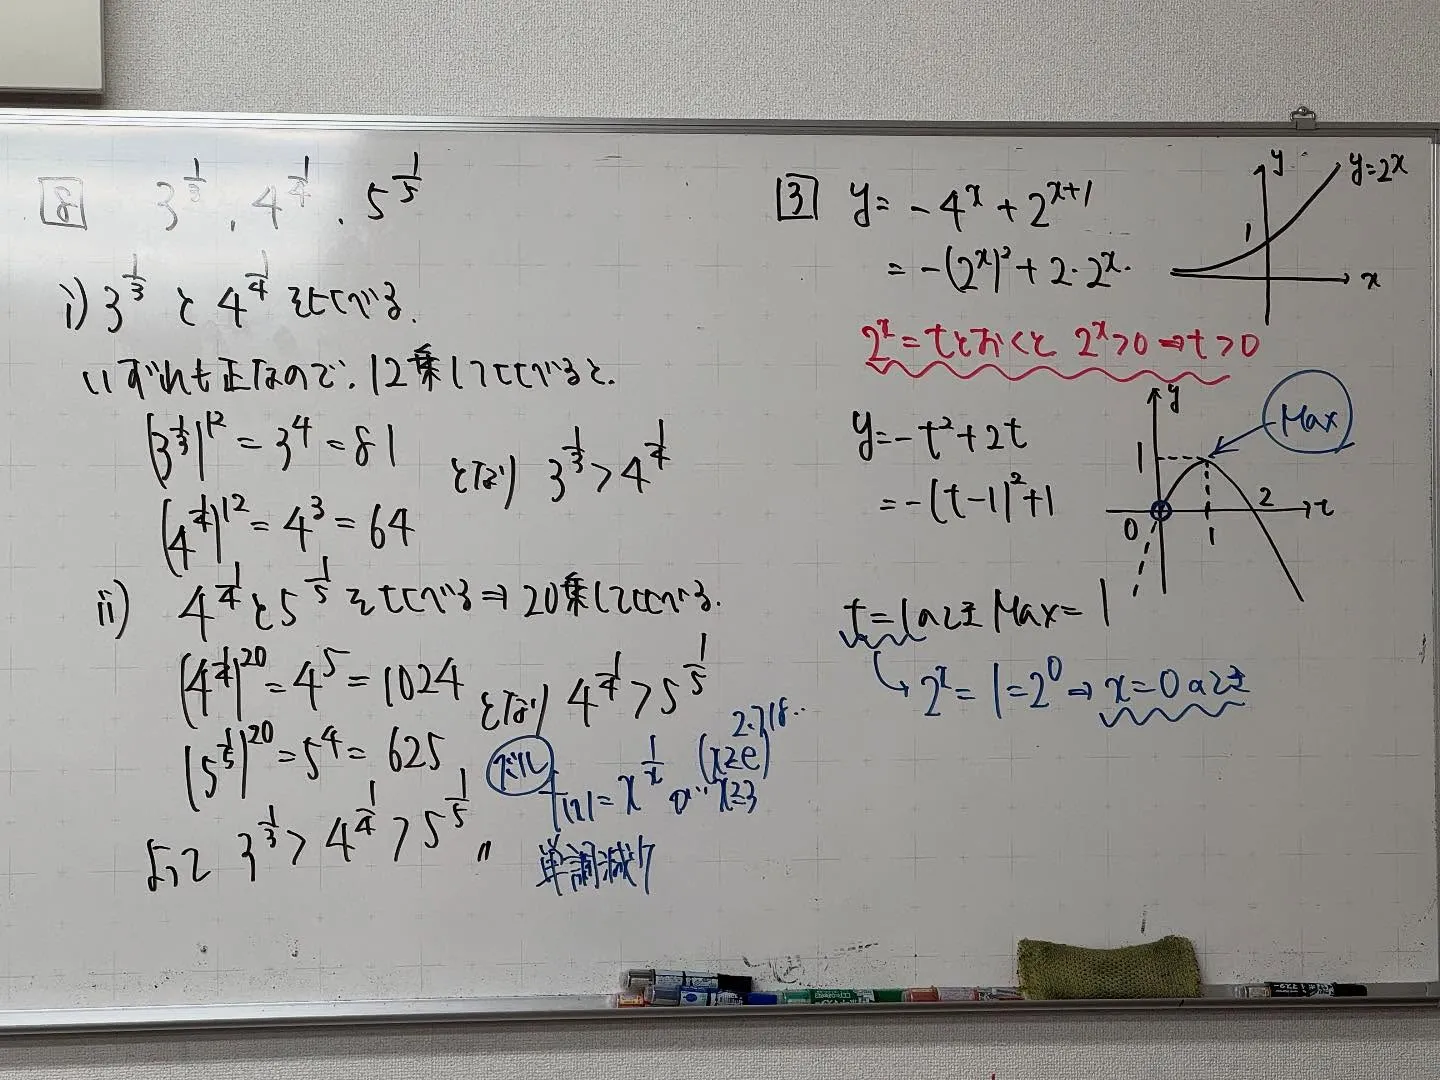 8 3^{1/3}, 4^{1/4}, 5^{1/5}
i) 3^{1/3} と 4^{1/4} を比べる.
いずれも正なので, 12乗して比べると,
(3^{1/3})^{12} = 3^4 = 81
となり 3^{1/3} > 4^{1/4}
(4^{1/4})^{12} = 4^3 = 64
ii) 4^{1/4} と 5^{1/5} を比べる ⇒ 20乗して比べる.
(4^{1/4})^{20} = 4^5 = 1024
となり 4^{1/4} > 5^{1/5}
(5^{1/5})^{20} = 5^4 = 625
よって 3^{1/3} > 4^{1/4} > 5^{1/5} 〃
f(x) = x^{1/x} (x≧e)
2.718..
x≧3
単調減少
3 y = -4^x + 2^{x+1}
= -(2^x)^2 + 2・2^x.
y
y=2^x
1
x
2^x = t とおくと 2^x > 0 ⇒ t > 0
y = -t^2 + 2t
= -(t-1)^2 + 1
y
Max
1
0
1
2
t
t = 1 のとき Max = 1
2^x = 1 = 2^0 ⇒ x = 0 のとき